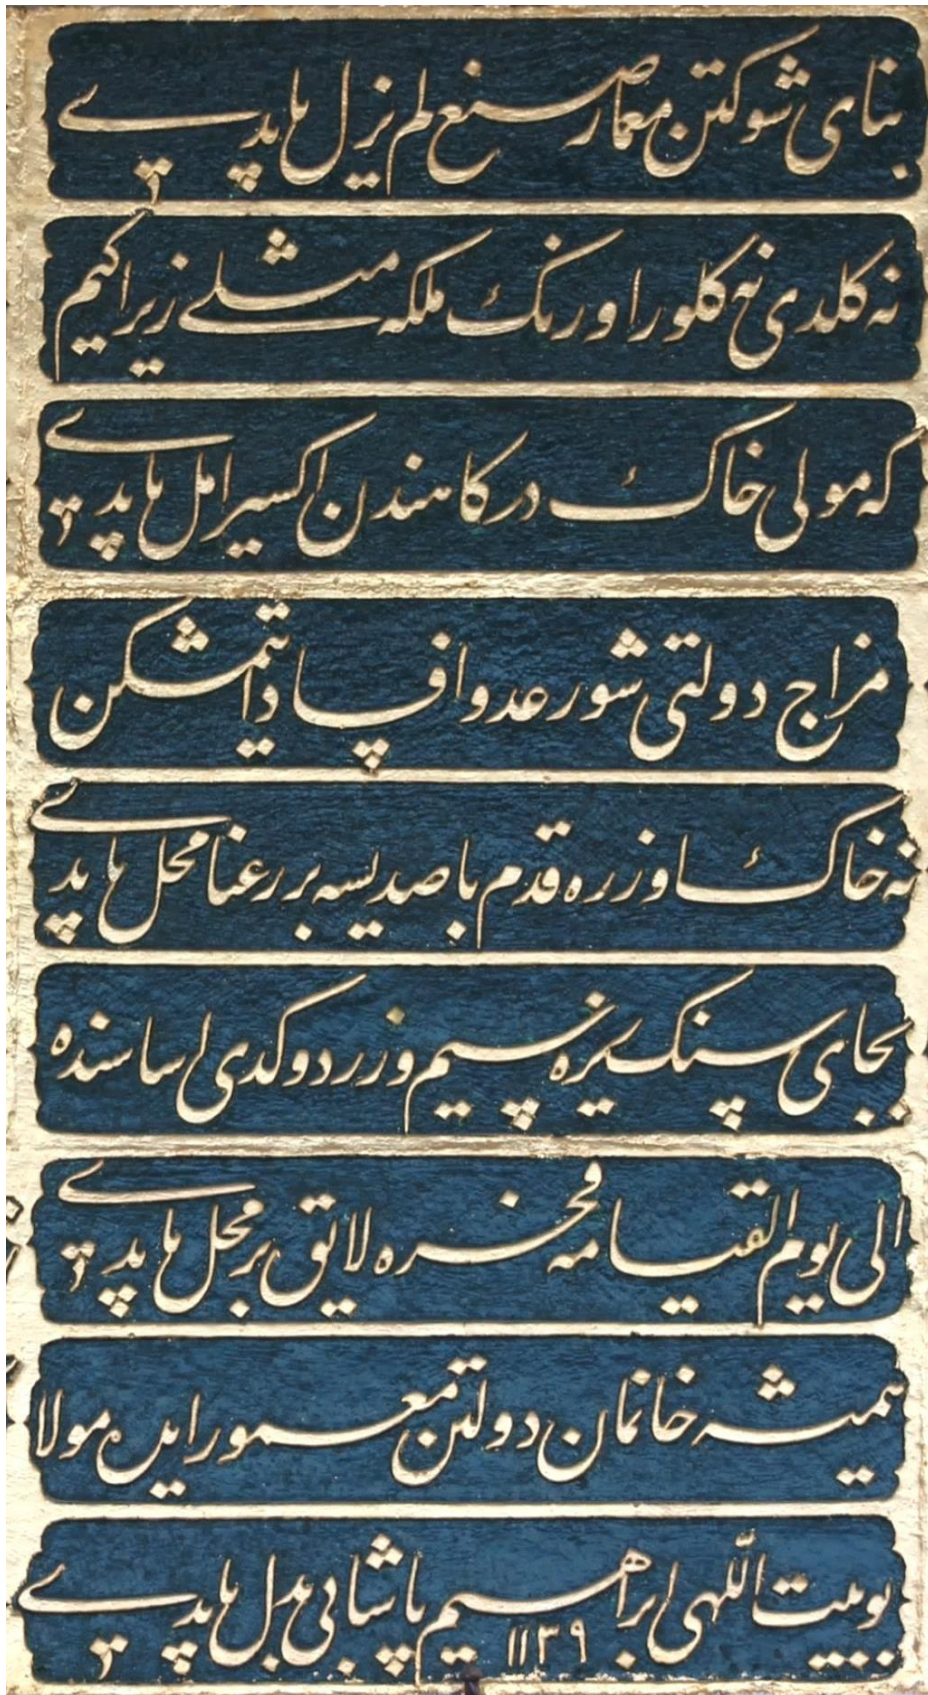 بنای شوکتن معمار صنع لم یزل یاپدی
نه کلدی نه کلور اورنک ملکه مثلی زیرا کیم
که مولی خاک درکاهندن اکسیر امل یاپدی
مزاج دولتی شور عدو افساد ایتمشکن
نه خاک اوزره قدم باصدیسه بر رعنا محل یاپدی
بجای سنک یره سیم وزر دوکدی لرسا سنده
الی یوم القیامه فخره لایق بر محل یاپدی
همیشه خانمان دولتن معمور ایده مولا
بو بیت اللهی ابراهیم پاشا بی بدل یاپدی
۱۱۳۹